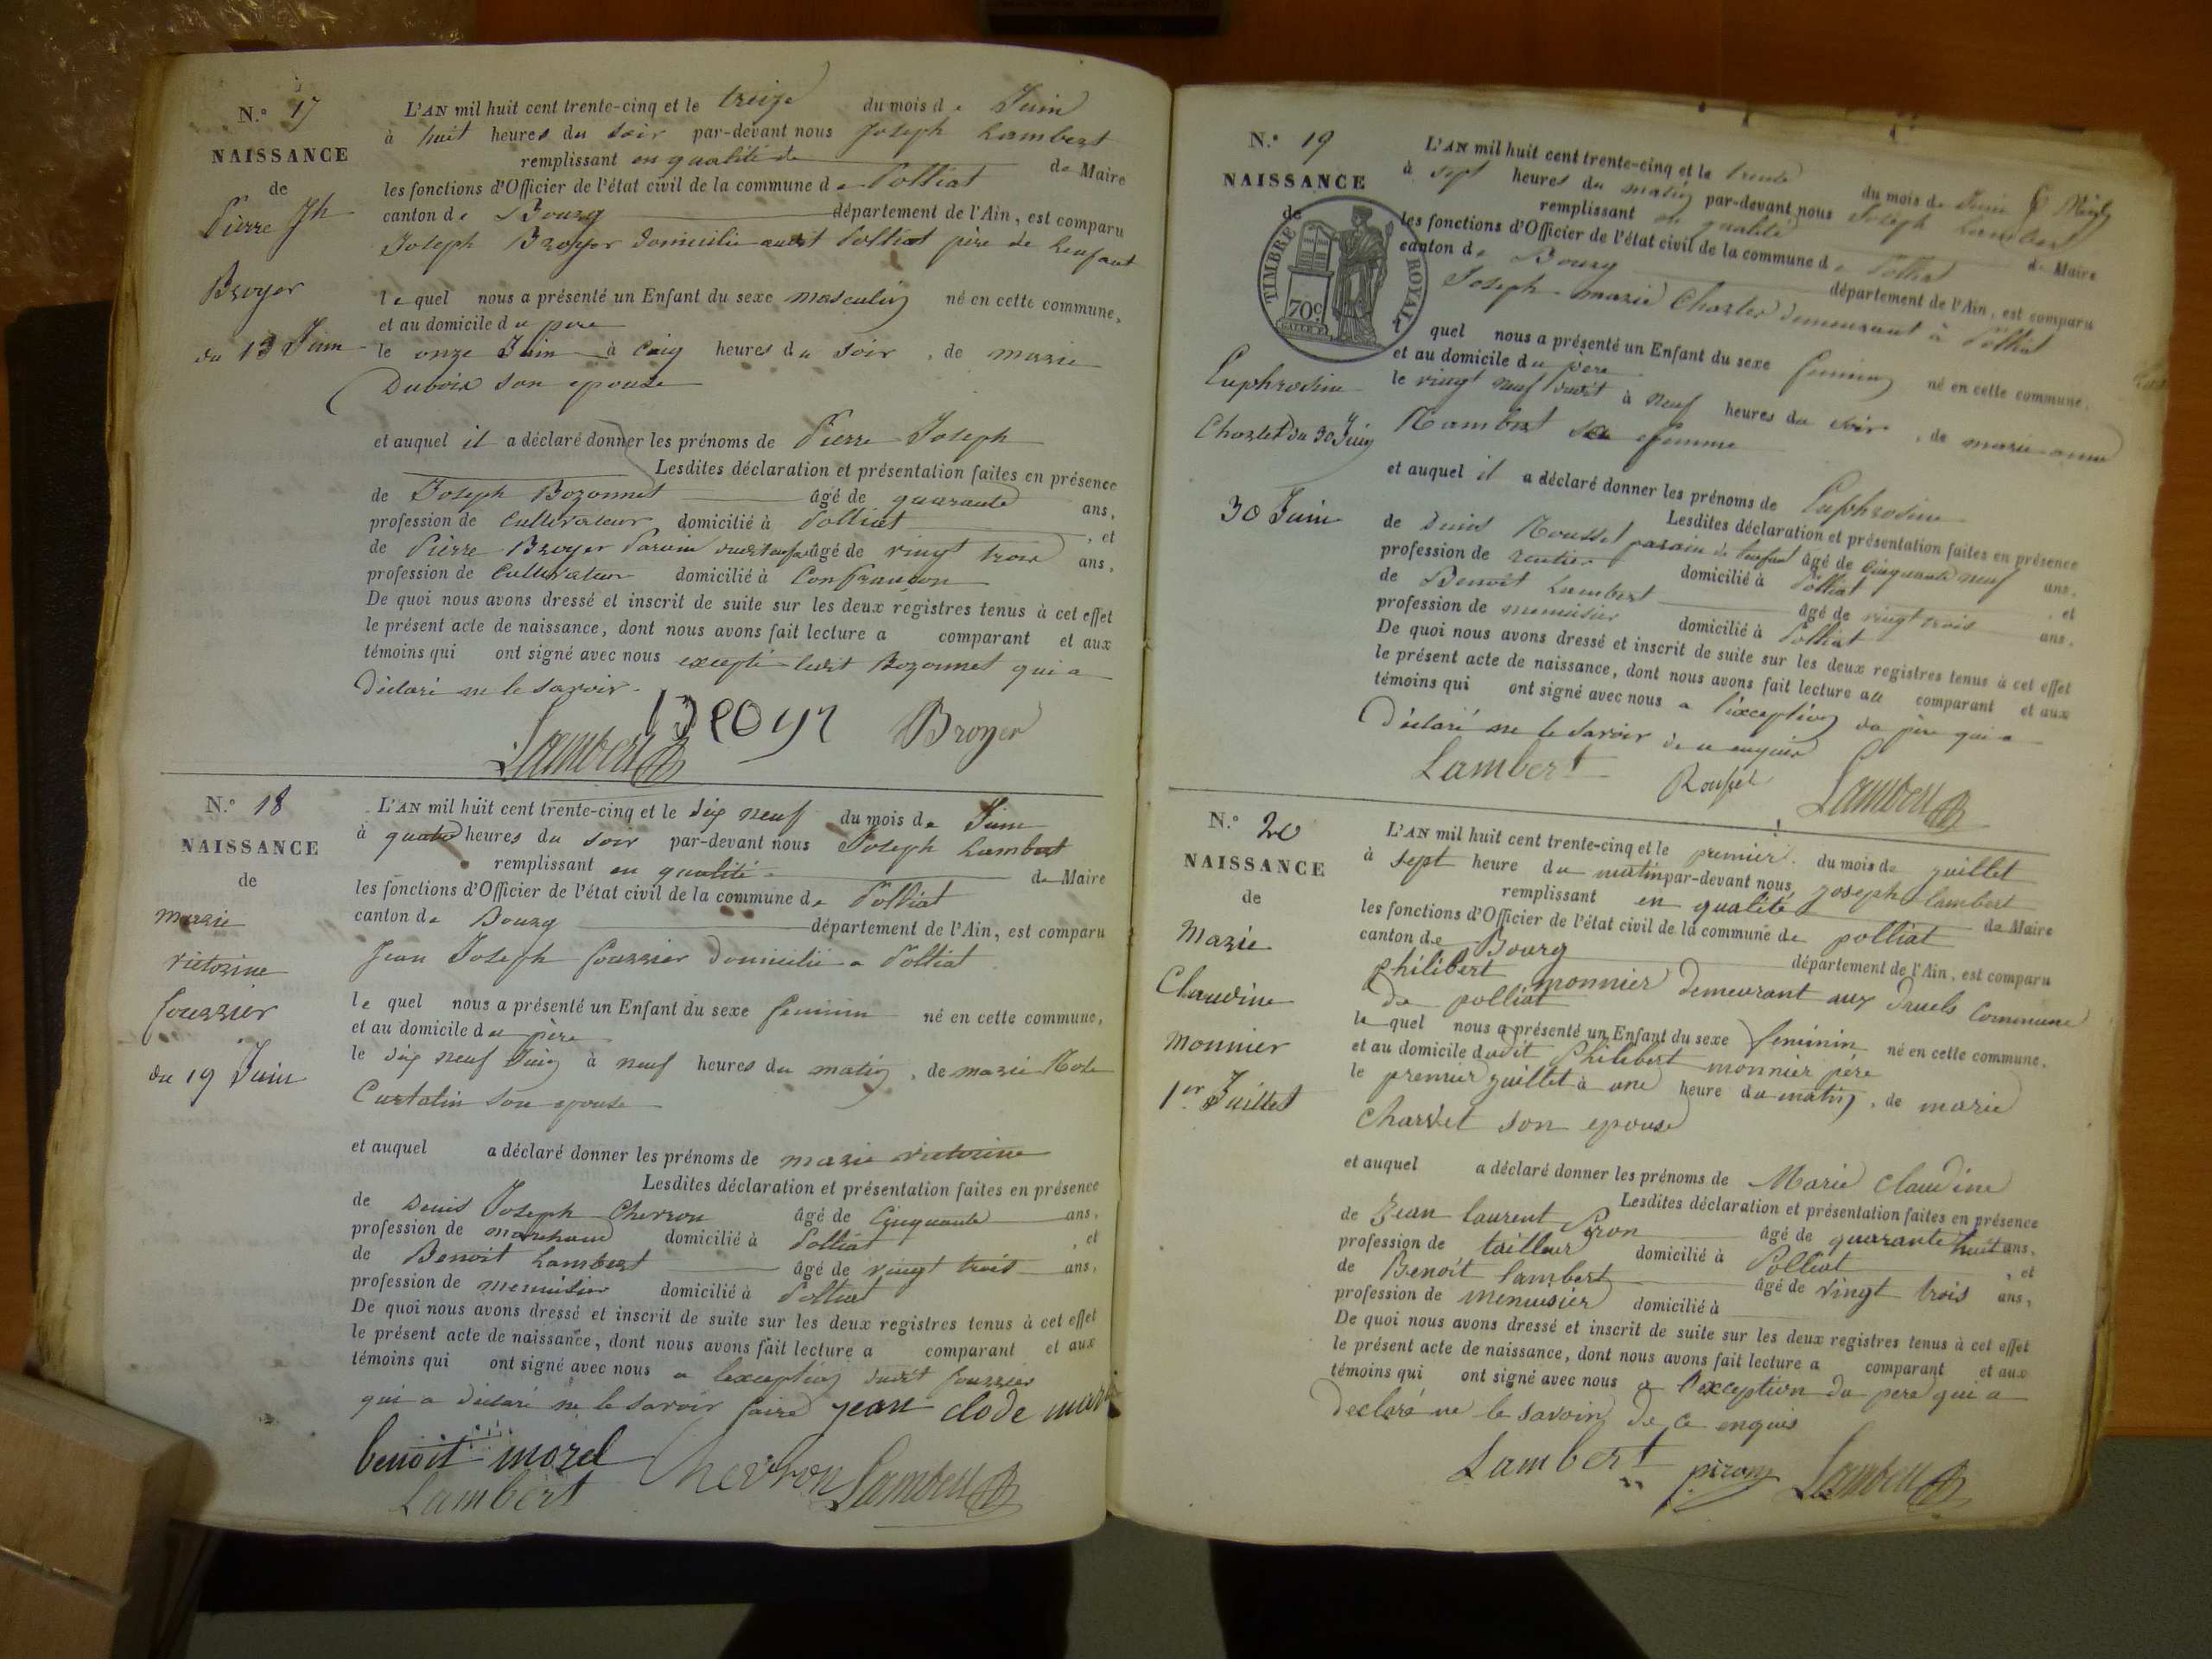 N.° 17
NAISSANCE
de
Pierre Jh
Broyer
du 13 Juin
L'AN mil huit cent trente-cinq et le treize du mois de Juin
à huit heures du soir par-devant nous Joseph Lambert
remplissant en qualité de Maire
les fonctions d'Officier de l'état civil de la commune de Polliat
canton de Bourg département de l'Ain, est comparu
Joseph Broyer domicilié audit Polliat père de lenfant
le quel nous a présenté un Enfant du sexe masculin né en cette commune,
et au domicile du pere
le onze Juin à cinq heures du soir, de marie
Dubois son epouse
et auquel il a déclaré donner les prénoms de Pierre Joseph
Lesdites déclaration et présentation faites en présence
de Joseph Bozonnet âgé de quarante ans,
profession de Cultivateur domicilié à Polliat, et
de Pierre Broyer Parain âgé de vingt trois ans,
profession de Cultivateur domicilié à Confrançon
De quoi nous avons dressé et inscrit de suite sur les deux régistres tenus à cet effet
le présent acte de naissance, dont nous avons fait lecture a comparant et aux
témoins qui ont signé avec nous excepté ledit Bozonnet qui a
déclaré ne le savoir.
Broyer
Lambert
N.° 18
NAISSANCE
de
marie
victorine
du 19 Juin
L'AN mil huit cent trente-cinq et le dix neuf du mois de Juin
à quatre heures du soir par-devant nous Joseph Lambert
remplissant en qualité de Maire
les fonctions d'Officier de l'état civil de la commune de Polliat
canton de Bourg département de l'Ain, est comparu
Jean Joseph domicilié a Polliat
le quel nous a présenté un Enfant du sexe feminin né en cette commune,
et au domicile du père
le dix neuf Juin à neuf heures du matin, de marie
Curtalin son epouse
et auquel a déclaré donner les prénoms de marie victorine
Lesdites déclaration et présentation faites en présence
de Denis Joseph Chevron âgé de Cinquante ans,
profession de marchand domicilié à Polliat, et
de Benoit Lambert âgé de vingt trois ans,
profession de menuisier domicilié à Polliat
De quoi nous avons dressé et inscrit de suite sur les deux registres tenus à cet effet
le présent acte de naissance, dont nous avons fait lecture a comparant et aux
témoins qui ont signé avec nous a lexception dudit
qui a déclaré ne le savoir faire jean clode
benoit morel Chevron Lambert
Lambert
N.° 19
NAISSANCE
de
TIMBRE ROYAL
70c.
Euphrosine
Charlet du 30 Juin
30 Juin
L'AN mil huit cent trente-cinq et le trente du mois de Juin
à sept heures du matin par-devant nous Joseph Lambert
remplissant en qualité de Maire
les fonctions d'Officier de l'état civil de la commune de Polliat
canton de Bourg département de l'Ain, est comparu
Joseph marie Charlet demeurant à Polliat
quel nous a présenté un Enfant du sexe feminin né en cette commune,
et au domicile du père
le vingt neuf dudit à neuf heures du soir, de marie anne
Rambert sa femme
et auquel il a déclaré donner les prénoms de Euphrosine
Lesdites déclaration et présentation faites en présence
de Denis Rousset parain de lenfant âgé de cinquante neuf ans,
profession de rentier domicilié à Polliat, et
de Benoit Lambert âgé de vingt trois ans,
profession de menuisier domicilié à Polliat
De quoi nous avons dressé et inscrit de suite sur les deux registres tenus à cet effet
le présent acte de naissance, dont nous avons fait lecture au comparant et aux
témoins qui ont signé avec nous a l'exception du père qui a
déclaré ne le savoir de ce enquis
Lambert Rousset Lambert
N.° 20
NAISSANCE
de
Marie
Claudine
monnier
1er Juillet
L'AN mil huit cent trente-cinq et le premier du mois de juillet
à sept heure du matin par-devant nous joseph lambert
remplissant en qualité de Maire
les fonctions d'Officier de l'état civil de la commune de polliat
canton de Bourg département de l'Ain, est comparu
philibert monnier demeurant aux druels Commune
de polliat
le quel nous a présenté un Enfant du sexe feminin né en cette commune,
et au domicile dudit Philibert monnier père
le premier juillet à une heure du matin, de marie
Charvet son epouse
et auquel a déclaré donner les prénoms de Marie Claudine
Lesdites déclaration et présentation faites en présence
de Jean laurent Piron âgé de quarante huit ans,
profession de tailleur domicilié à Polliat, et
de Benoit lambert âgé de vingt trois ans,
profession de menuisier domicilié à
De quoi nous avons dressé et inscrit de suite sur les deux registres tenus à cet effet
le présent acte de naissance, dont nous avons fait lecture a comparant et aux
témoins qui ont signé avec nous a l'exception du pere qui a
declaré ne le savoir de ce enquis
Lambert piron Lambert